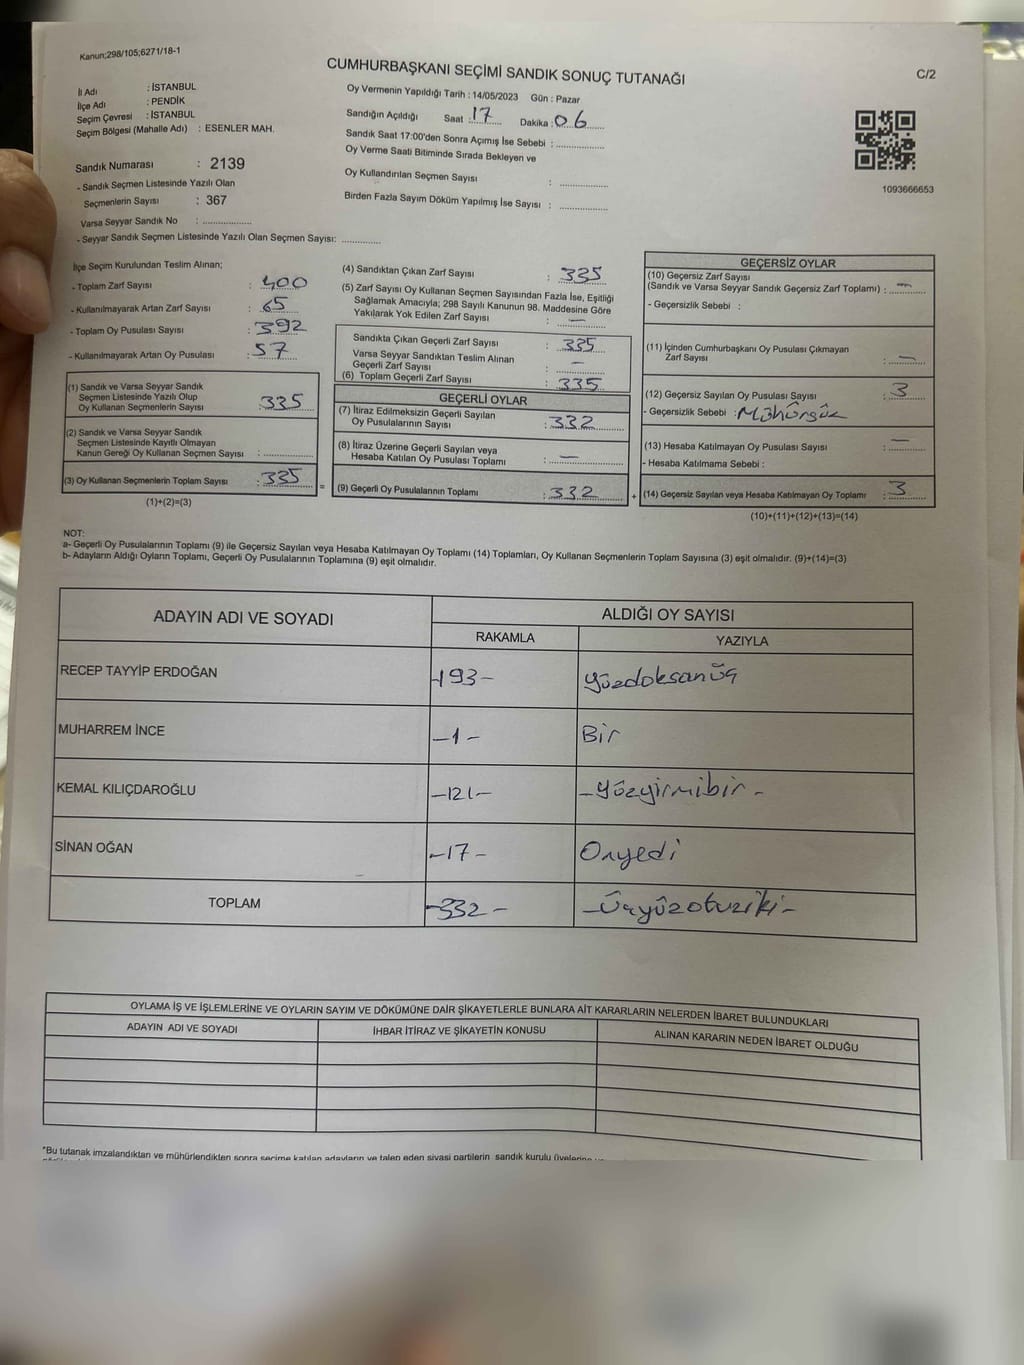 Kanun;298/105;6271/18-1
CUMHURBAŞKANI SEÇİMİ SANDIK SONUÇ TUTANAĞI
C/2
İl Adı : İSTANBUL
İlçe Adı : PENDİK
Seçim Çevresi : İSTANBUL
Seçim Bölgesi (Mahalle Adı) : ESENLER MAH.
Sandık Numarası : 2139
- Sandık Seçmen Listesinde Yazılı Olan
Seçmenlerin Sayısı : 367
Varsa Seyyar Sandık No : ..............
- Seyyar Sandık Seçmen Listesinde Yazılı Olan Seçmen Sayısı: ............
Oy Vermenin Yapıldığı Tarih : 14/05/2023 Gün : Pazar
Sandığın Açıldığı Saat : 17 Dakika : 06
Sandık Saat 17:00'den Sonra Açımış İse Sebebi : ..............
Oy Verme Saati Bitiminde Sırada Bekleyen ve
Oy Kullandırılan Seçmen Sayısı : ..............
Birden Fazla Sayım Döküm Yapılmış İse Sayısı : ..............
1093666653
İlçe Seçim Kurulundan Teslim Alınan;
- Toplam Zarf Sayısı : 400
- Kullanılmayarak Artan Zarf Sayısı : 65
- Toplam Oy Pusulası Sayısı : 392
- Kullanılmayarak Artan Oy Pusulası : 57
(1) Sandık ve Varsa Seyyar Sandık
Seçmen Listesinde Yazılı Olup
Oy Kullanan Seçmenlerin Sayısı : 335
(2) Sandık ve Varsa Seyyar Sandık
Seçmen Listesinde Kayıtlı Olmayan
Kanun Gereği Oy Kullanan Seçmen Sayısı : ..............
(3) Oy Kullanan Seçmenlerin Toplam Sayısı : 335
(1)+(2)=(3)
=
(4) Sandıktan Çıkan Zarf Sayısı : 335
(5) Zarf Sayısı Oy Kullanan Seçmen Sayısından Fazla İse, Eşitliği
Sağlamak Amacıyla; 298 Sayılı Kanunun 98. Maddesine Göre
Yakılarak Yok Edilen Zarf Sayısı : —
Sandıkta Çıkan Geçerli Zarf Sayısı : 335
Varsa Seyyar Sandıktan Teslim Alınan
Geçerli Zarf Sayısı : —
(6) Toplam Geçerli Zarf Sayısı : 335
GEÇERLİ OYLAR
(7) İtiraz Edilmeksizin Geçerli Sayılan
Oy Pusulalarının Sayısı : 332
(8) İtiraz Üzerine Geçerli Sayılan veya
Hesaba Katılan Oy Pusulası Toplamı : —
(9) Geçerli Oy Pusulalarının Toplamı : 332
+
GEÇERSİZ OYLAR
(10) Geçersiz Zarf Sayısı
(Sandık ve Varsa Seyyar Sandık Geçersiz Zarf Toplamı) : —
- Geçersizlik Sebebi :
(11) İçinden Cumhurbaşkanı Oy Pusulası Çıkmayan
Zarf Sayısı : —
(12) Geçersiz Sayılan Oy Pusulası Sayısı : 3
- Geçersizlik Sebebi : Mühürsüz
(13) Hesaba Katılmayan Oy Pusulası Sayısı : —
- Hesaba Katılmama Sebebi :
(14) Geçersiz Sayılan veya Hesaba Katılmayan Oy Toplamı : 3
(10)+(11)+(12)+(13)=(14)
NOT:
a- Geçerli Oy Pusulalarının Toplamı (9) ile Geçersiz Sayılan veya Hesaba Katılmayan Oy Toplamı (14) Toplamları, Oy Kullanan Seçmenlerin Toplam Sayısına (3) eşit olmalıdır. (9)+(14)=(3)
b- Adayların Aldığı Oyların Toplamı, Geçerli Oy Pusulalarının Toplamına (9) eşit olmalıdır.
ADAYIN ADI VE SOYADI
ALDIĞI OY SAYISI
RAKAMLA YAZIYLA
RECEP TAYYİP ERDOĞAN -193- yüzdoksanüç
MUHARREM İNCE -1- Bir
KEMAL KILIÇDAROĞLU -121- -yüzyirmibir-
SİNAN OĞAN -17- Onyedi
TOPLAM -332- -Üçyüzotuziki-
OYLAMA İŞ VE İŞLEMLERİNE VE OYLARIN SAYIM VE DÖKÜMÜNE DAİR ŞİKAYETLERLE BUNLARA AİT KARARLARIN NELERDEN İBARET BULUNDUKLARI
ADAYIN ADI VE SOYADI
İHBAR İTİRAZ VE ŞİKAYETİN KONUSU
ALINAN KARARIN NEDEN İBARET OLDUĞU
"Bu tutanak imzalandıktan ve mühürlendikten sonra seçime katılan adayların ve talep eden siyasi partilerin sandık kurulu üyelerine